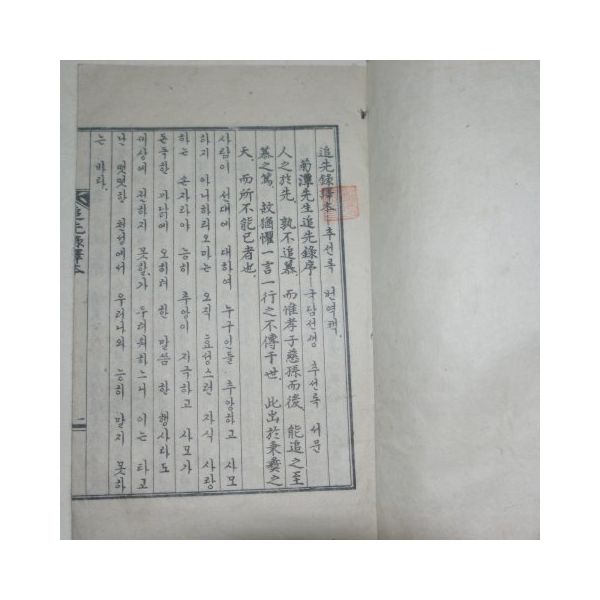 追先錄譯本 추선록 번역책
菊潭先生追先錄序 국담선생 추선록 서문
人之於先、孰不追慕、而惟孝子慈孫而後、能追之至
慕之篤、故猶懼一言一行之不傳于世、此出於秉彛之
天、而所不能已者也、
사람이 선대에 대하여 누구인들 추앙하고 사모
하지 아니하리오마는 오직 효성스런 자식 사랑
하는 손자라야 능히 추앙이 지극하고 사모가
돈독한 까닭에 오히려 한 말씀 한 행사라도
세상에 전하지 못할가 두려워하느니 이는 타고
난 떳떳한 천성에서 우러나와 능히 말지 못하
는 바라
追先錄譯本
一